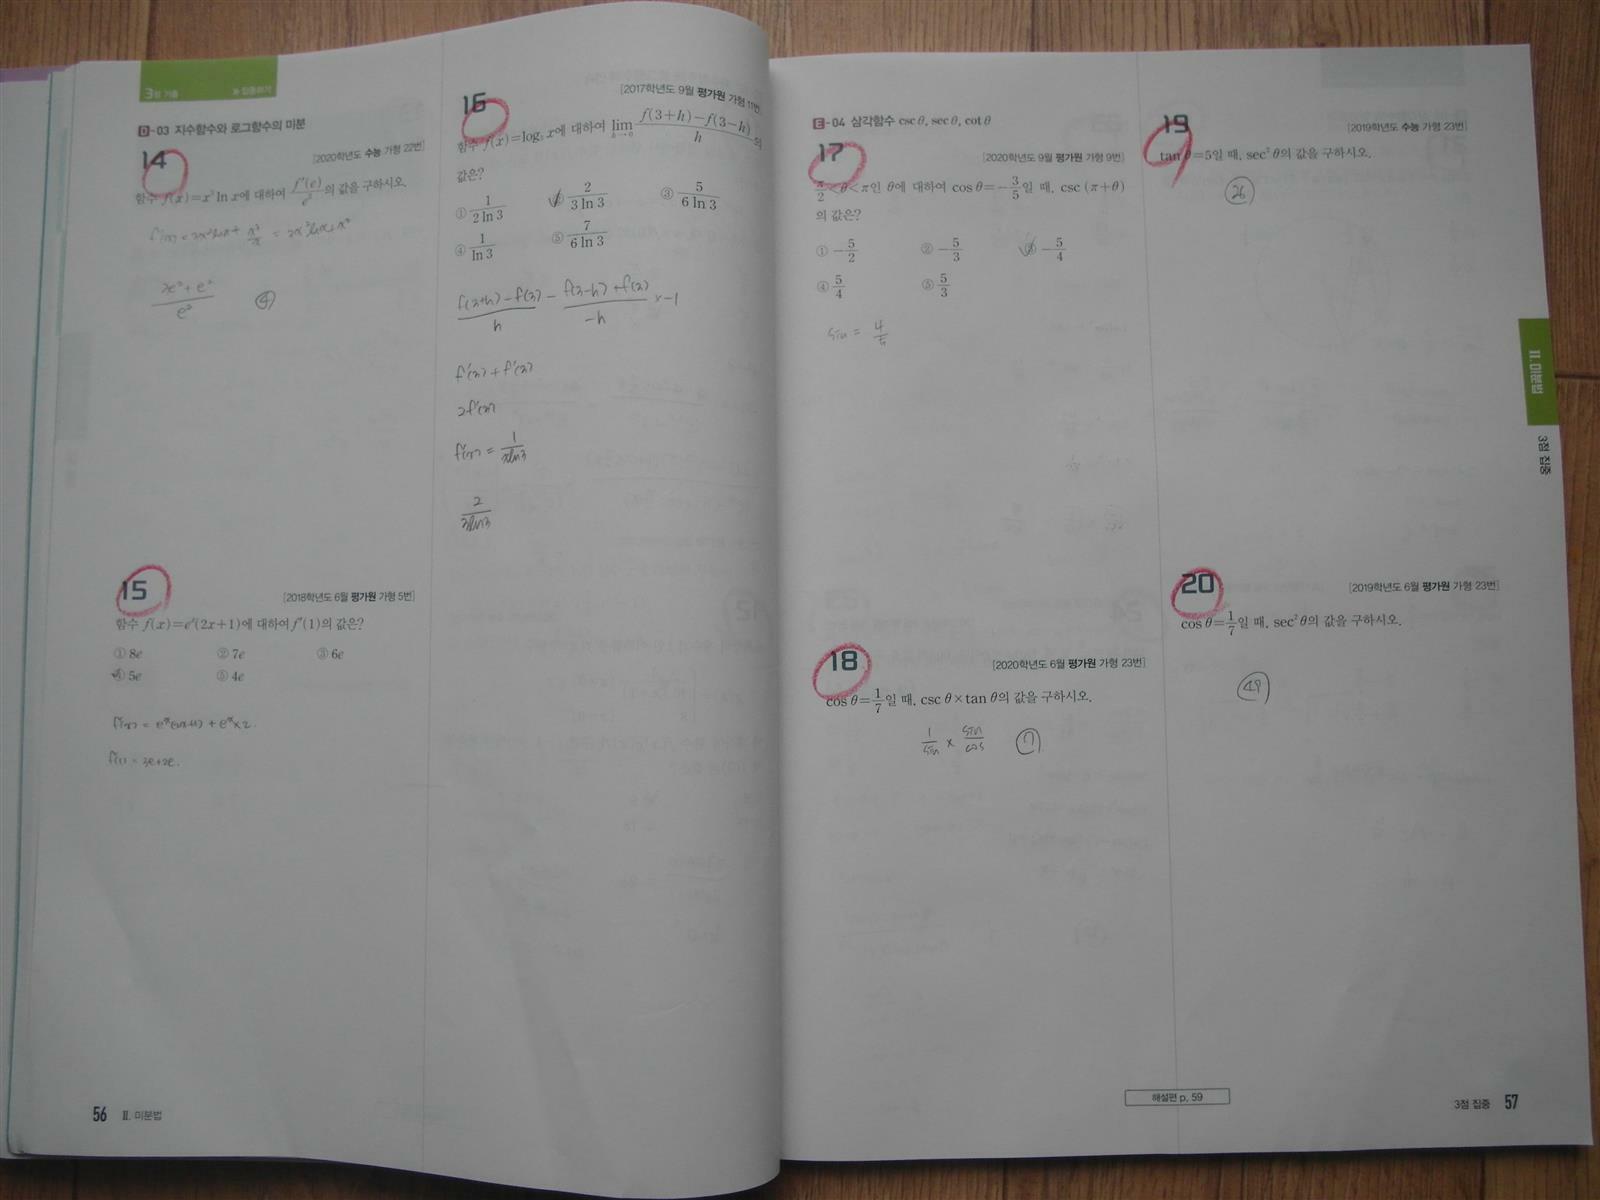 3점 기출 ≫ 집중하기
D-03 지수함수와 로그함수의 미분
14
[2020학년도 수능 가형 22번]
함수 f(x)=x³ ln x에 대하여 f′(e)/e²의 값을 구하시오.
f'(x) = 3x²lnx + x³/x = 3x²lnx+x²
3e²+e²/e²
④
15
[2018학년도 6월 평가원 가형 5번]
함수 f(x)=eˣ(2x+1)에 대하여 f′(1)의 값은?
① 8e ② 7e ③ 6e
④ 5e ⑤ 4e
f'(x) = eˣ(2x+1) + eˣ×2.
f'(1) = 3e+2e.
56 Ⅱ. 미분법
16
[2017학년도 9월 평가원 가형 11번]
함수 f(x)=log₃ x에 대하여 lim h→0 f(3+h)−f(3−h)/h의
값은?
① 1/2 ln 3 ② 2/3 ln 3 ③ 5/6 ln 3
④ 1/ln 3 ⑤ 7/6 ln 3
f(3+h)-f(3)/h - f(3-h)+f(3)/-h ×-1
f'(3)+f'(3)
2f'(3)
f'(x) = 1/xln3
2/3ln3
E-04 삼각함수 csc θ, sec θ, cot θ
17
[2020학년도 9월 평가원 가형 9번]
π/2<θ<π인 θ에 대하여 cos θ=−3/5일 때, csc (π+θ)
의 값은?
① −5/2 ② −5/3 ③ −5/4
④ 5/4 ⑤ 5/3
sin = 4/5
18
[2020학년도 6월 평가원 가형 23번]
cos θ=1/7일 때, csc θ×tan θ의 값을 구하시오.
1/sin × sin/cos ⑦
19
[2019학년도 수능 가형 23번]
tan θ=5일 때, sec² θ의 값을 구하시오.
26
20
[2019학년도 6월 평가원 가형 23번]
cos θ=1/7일 때, sec² θ의 값을 구하시오.
49
Ⅱ. 미분법
3점 집중
해설편 p. 59
3점 집중 57